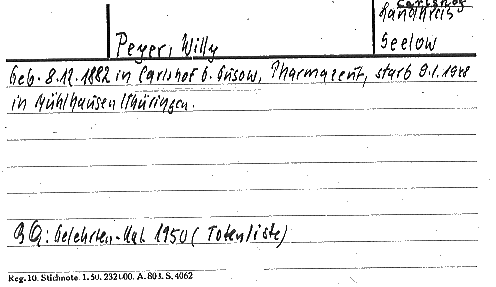 Carlshof
Landkreis
Peyer, Willy
Seelow
Geb. 8.12.1882 in Carlshof b. Gusow, Pharmazeut, starb 9.1.1948
in Mühlhausen/Thüringen.
BQ: Gelehrten-Kal. 1950 (Totenliste)
Reg. 10. Stichnote. 1. 50. 2321-00. A. 803. S. 4062